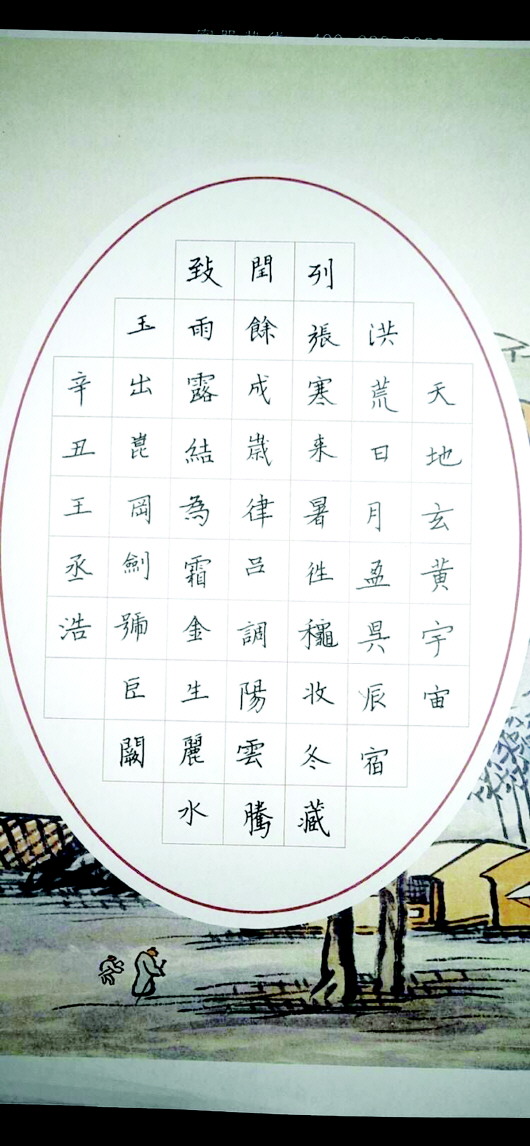 天地玄黄宇宙
洪荒日月盈昃辰宿
列張寒来暑徃穐收冬藏
閏餘成歲律吕調陽雲騰
致雨露結為霜金生麗水
玉出崑岡劍號巨闕
辛丑王丞浩